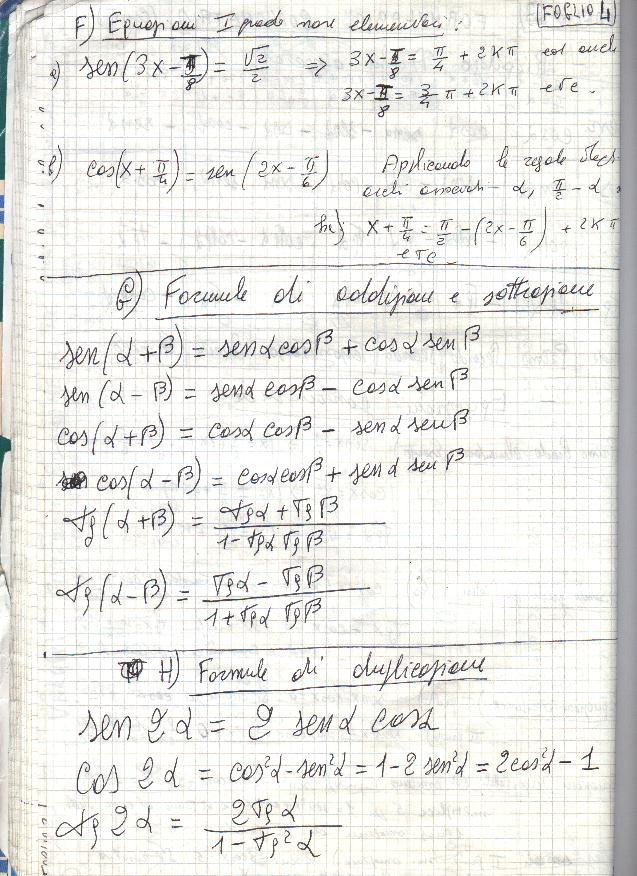 F) Equazioni I grado non elementari: FOGLIO 4
a) sen(3x - π/8) = √2/2 => 3x - π/8 = π/4 + 2Kπ ed anche
3x - π/8 = 3/4 π + 2Kπ etc.
b) cos(x + π/4) = sen(2x - π/6) Applicando le regole degli
archi associati α, π/2 - α
ho; x + π/4 = π/2 - (2x - π/6) + 2Kπ
etc
G) Formule di addizione e sottrazione
sen(α+β) = senα cosβ + cosα senβ
sen(α-β) = senα cosβ - cosα senβ
cos(α+β) = cosα cosβ - senα senβ
cos(α-β) = cosα cosβ + senα senβ
tg(α+β) = (tgα + tgβ)/(1 - tgα tgβ)
tg(α-β) = (tgα - tgβ)/(1 + tgα tgβ)
H) Formule di duplicazione
sen 2α = 2 senα cosα
cos 2α = cos²α - sen²α = 1 - 2 sen²α = 2cos²α - 1
tg 2α = 2tgα/(1 - tg²α)